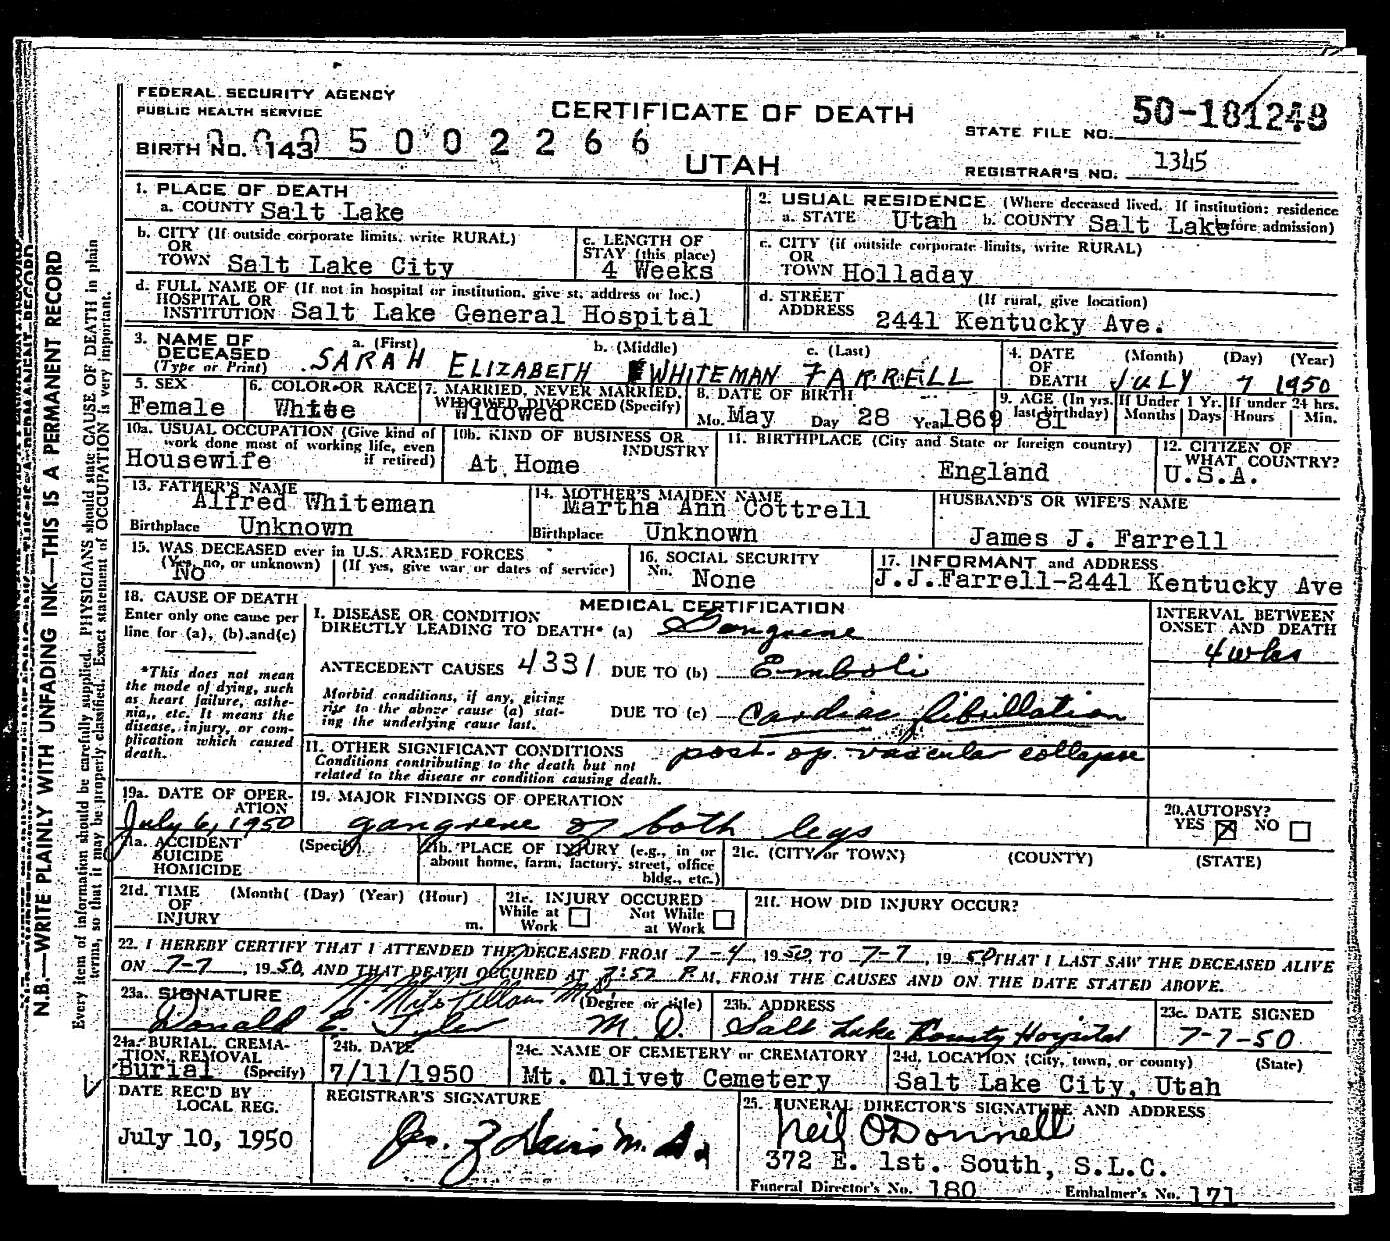 FEDERAL SECURITY AGENCY
PUBLIC HEALTH SERVICE
CERTIFICATE OF DEATH
UTAH
STATE FILE NO. 50-181248
BIRTH NO. 143 5 0 0 2 2 6 6
REGISTRAR'S NO. 1345
1. PLACE OF DEATH
a. COUNTY Salt Lake
2. USUAL RESIDENCE (Where deceased lived. If institution: residence before admission)
a. STATE Utah b. COUNTY Salt Lake
b. CITY (If outside corporate limits, write RURAL)
OR
TOWN Salt Lake City
c. LENGTH OF
STAY (this place)
4 Weeks
c. CITY (if outside corporate limits, write RURAL)
OR
TOWN Holladay
d. FULL NAME OF (If not in hospital or institution, give st. address or loc.)
HOSPITAL OR
INSTITUTION Salt Lake General Hospital
d. STREET (If rural, give location)
ADDRESS 2441 Kentucky Ave.
3. NAME OF
DECEASED
(Type or Print)
a. (First) b. (Middle) c. (Last)
SARAH ELIZABETH WHITEMAN FARRELL
4. DATE (Month) (Day) (Year)
OF
DEATH JULY 7 1950
5. SEX
Female
6. COLOR OR RACE
White
7. MARRIED, NEVER MARRIED,
WIDOWED, DIVORCED (Specify)
Widowed
8. DATE OF BIRTH
Mo. May Day 28 Year 1869
9. AGE (In yrs. last birthday)
81
If Under 1 Yr.
Months Days
If under 24 hrs.
Hours Min.
10a. USUAL OCCUPATION (Give kind of
work done most of working life, even
if retired)
Housewife
10b. KIND OF BUSINESS OR
INDUSTRY
At Home
11. BIRTHPLACE (City and State or foreign country)
England
12. CITIZEN OF
WHAT COUNTRY?
U.S.A.
13. FATHER'S NAME
Alfred Whiteman
Birthplace Unknown
14. MOTHER'S MAIDEN NAME
Martha Ann Cottrell
Birthplace Unknown
HUSBAND'S OR WIFE'S NAME
James J. Farrell
15. WAS DECEASED ever in U.S. ARMED FORCES
(Yes, no, or unknown) (If yes, give war or dates of service)
No
16. SOCIAL SECURITY
No. None
17. INFORMANT and ADDRESS
J.J.Farrell-2441 Kentucky Ave
18. CAUSE OF DEATH
Enter only one cause per
line for (a), (b), and (c)
*This does not mean
the mode of dying, such
as heart failure, asthe-
nia, etc. It means the
disease, injury, or com-
plication which caused
death.
MEDICAL CERTIFICATION
I. DISEASE OR CONDITION
DIRECTLY LEADING TO DEATH* (a) Gangrene
ANTECEDENT CAUSES 4331 DUE TO (b) Emboli
Morbid conditions, if any, giving
rise to the above cause (a) stat-
ing the underlying cause last.
DUE TO (c) Cardiac fibrillation
II. OTHER SIGNIFICANT CONDITIONS
Conditions contributing to the death but not
related to the disease or condition causing death.
post-op. vascular collapse
INTERVAL BETWEEN
ONSET AND DEATH
4 wks
19a. DATE OF OPER-
ATION
July 6, 1950
19. MAJOR FINDINGS OF OPERATION
gangrene of both legs
20. AUTOPSY?
YES ☒ NO ☐
21a. ACCIDENT (Specify)
SUICIDE
HOMICIDE
21b. PLACE OF INJURY (e.g., in or
about home, farm, factory, street, office
bldg., etc.)
21c. (CITY or TOWN) (COUNTY) (STATE)
21d. TIME (Month) (Day) (Year) (Hour)
OF
INJURY m.
21e. INJURY OCCURED
While at Work ☐ Not While at Work ☐
21f. HOW DID INJURY OCCUR?
22. I HEREBY CERTIFY THAT I ATTENDED THE DECEASED FROM 7-4, 1950, TO 7-7, 1950 THAT I LAST SAW THE DECEASED ALIVE
ON 7-7, 1950, AND THAT DEATH OCCURED AT 7:57 P.M, FROM THE CAUSES AND ON THE DATE STATED ABOVE.
23a. SIGNATURE (Degree or title)
Donald E. Tyler M.D.
23b. ADDRESS
Salt Lake County Hospital
23c. DATE SIGNED
7-7-50
24a. BURIAL, CREMA-
TION, REMOVAL
Burial (Specify)
24b. DATE
7/11/1950
24c. NAME OF CEMETERY or CREMATORY
Mt. Olivet Cemetery
24d. LOCATION (City, town, or county) (State)
Salt Lake City, Utah
DATE REC'D BY
LOCAL REG.
July 10, 1950
REGISTRAR'S SIGNATURE
25. FUNERAL DIRECTOR'S SIGNATURE AND ADDRESS
Neil O'Donnell
372 E. 1st. South, S.L.C.
Funeral Director's No. 180 Embalmer's No. 171
N.B.—WRITE PLAINLY WITH UNFADING INK—THIS IS A PERMANENT RECORD
Every item of information should be carefully supplied. PHYSICIANS should state CAUSE OF DEATH in plain
terms, so that it may be properly classified. Exact statement of OCCUPATION is very important.